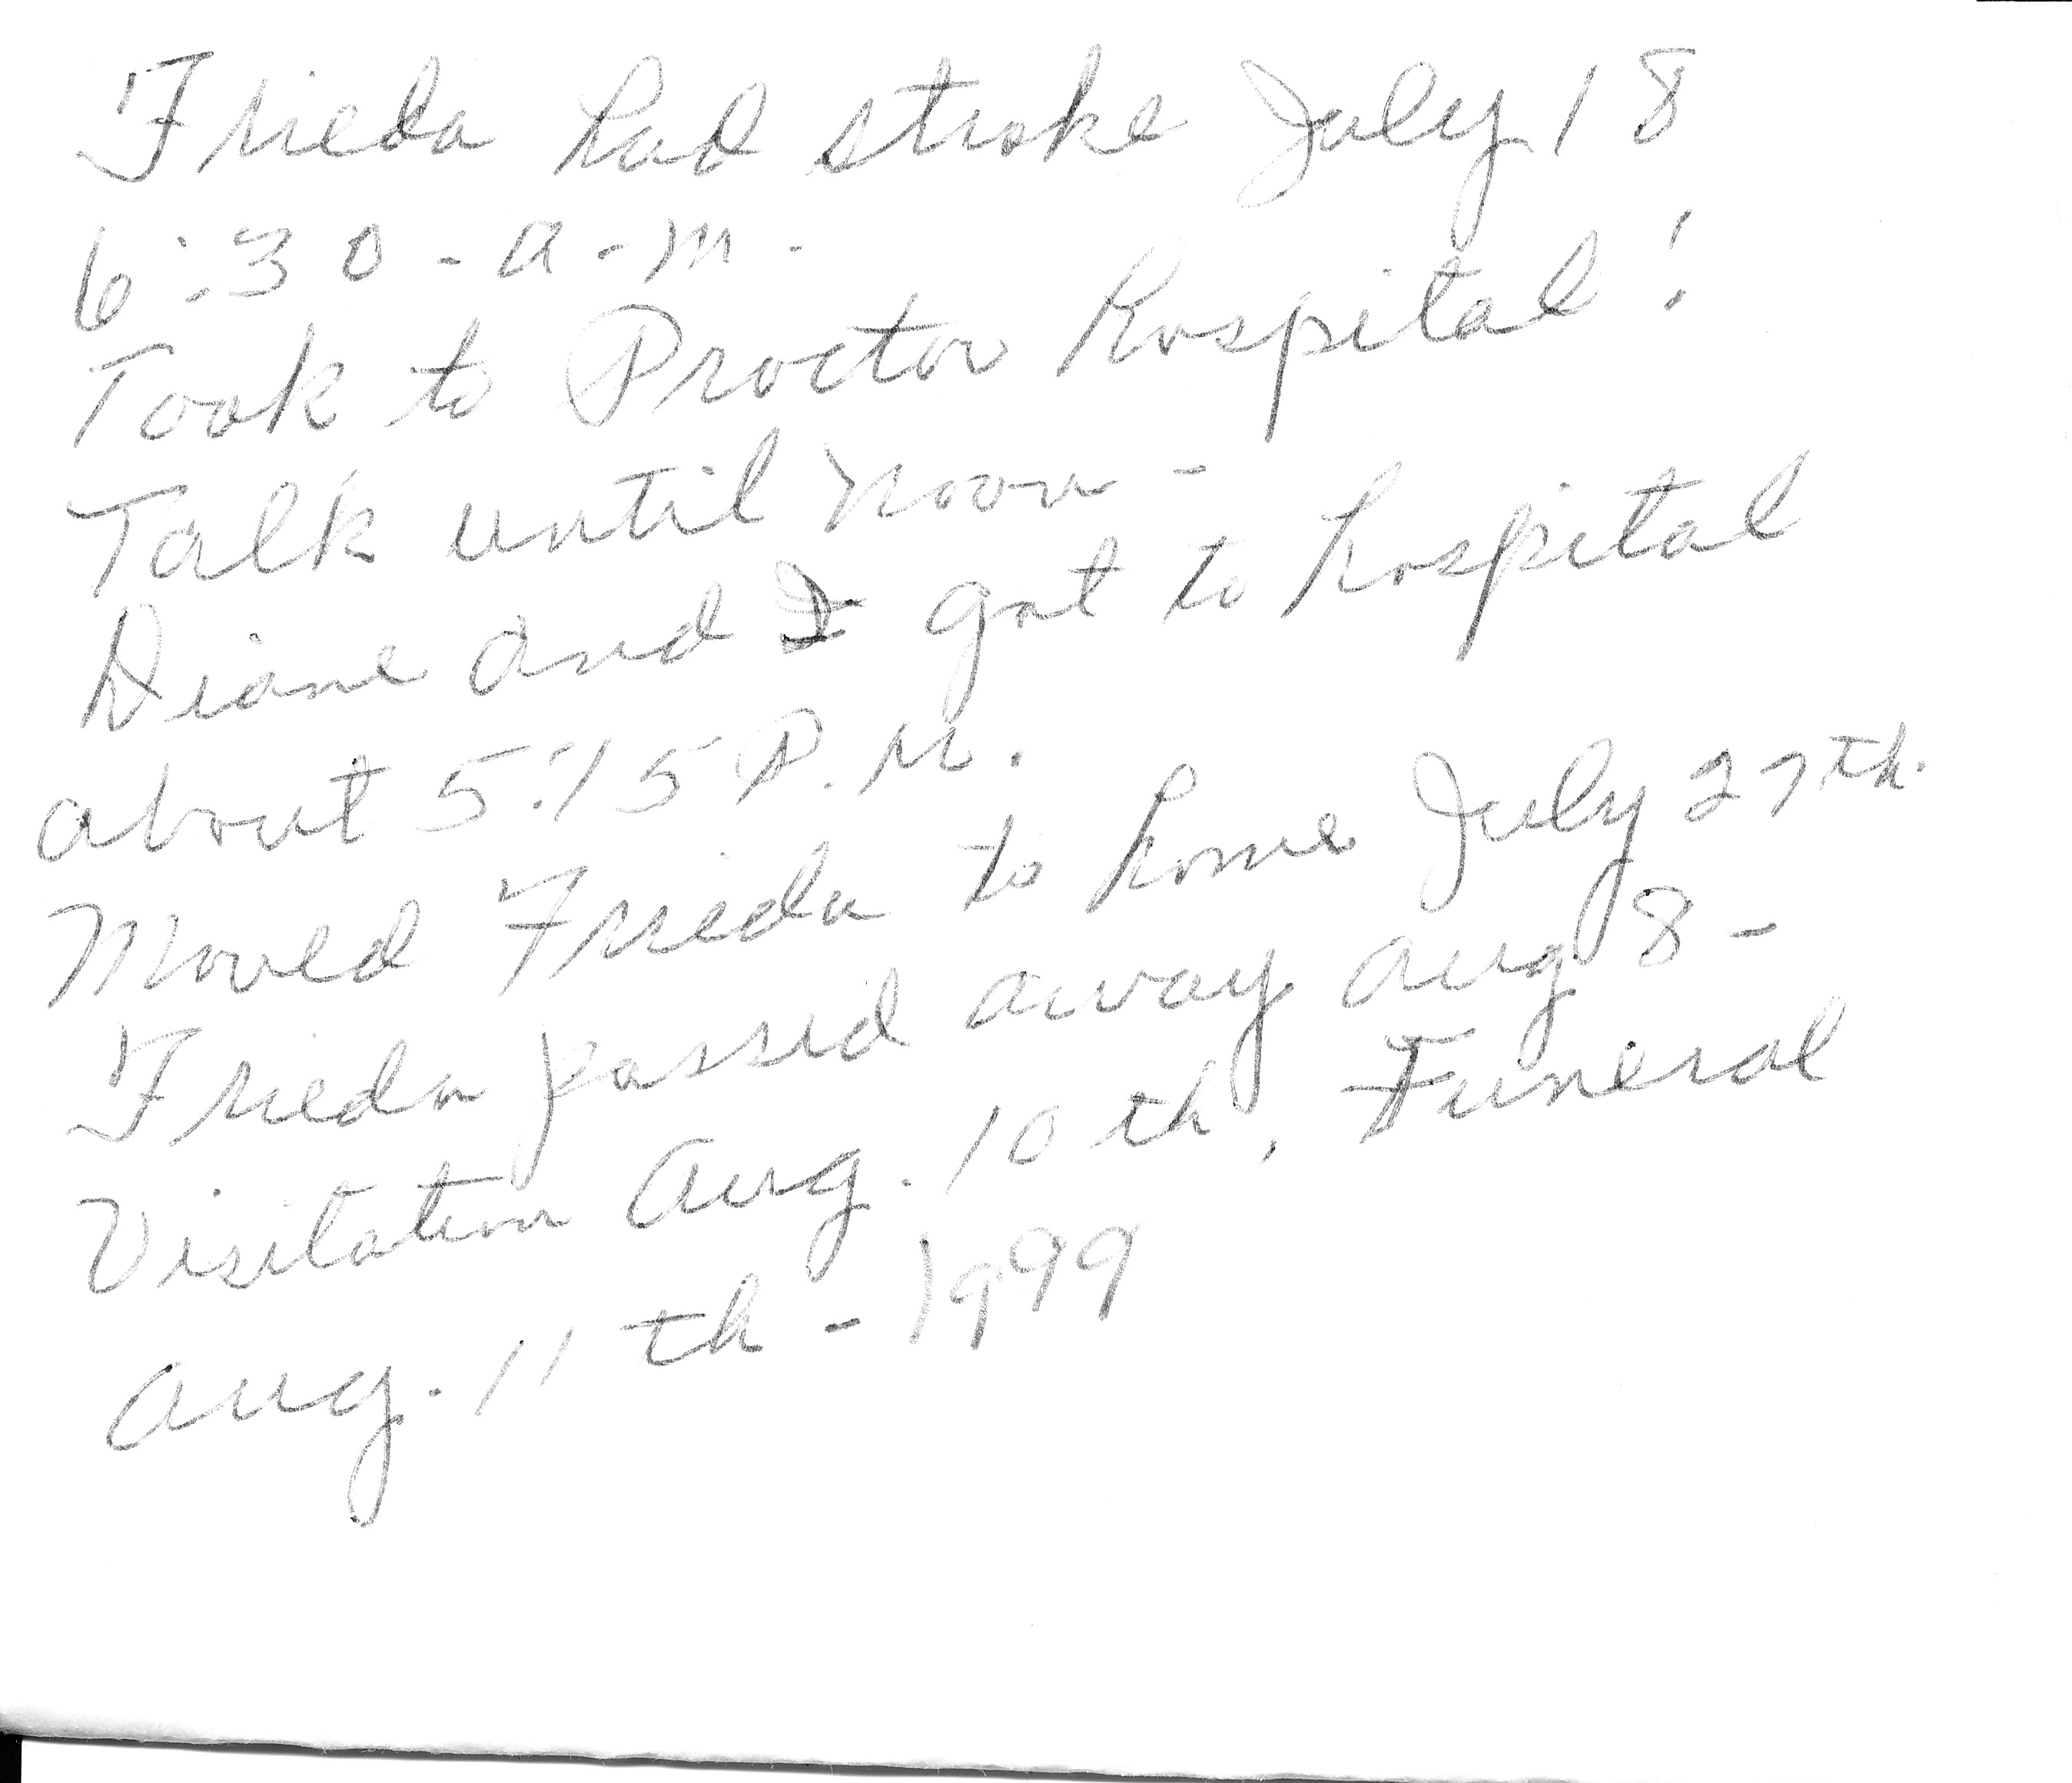 Frieda had stroke July 18
6:30 - a - m -
Took to Proctor hospital!
Talk until noon -
Diane and I got to hospital
about 5:15 P.M.
Moved Frieda to home July 27th.
Frieda passed away Aug 8 -
Visitation Aug. 10th, Funeral
Aug. 11th - 1999